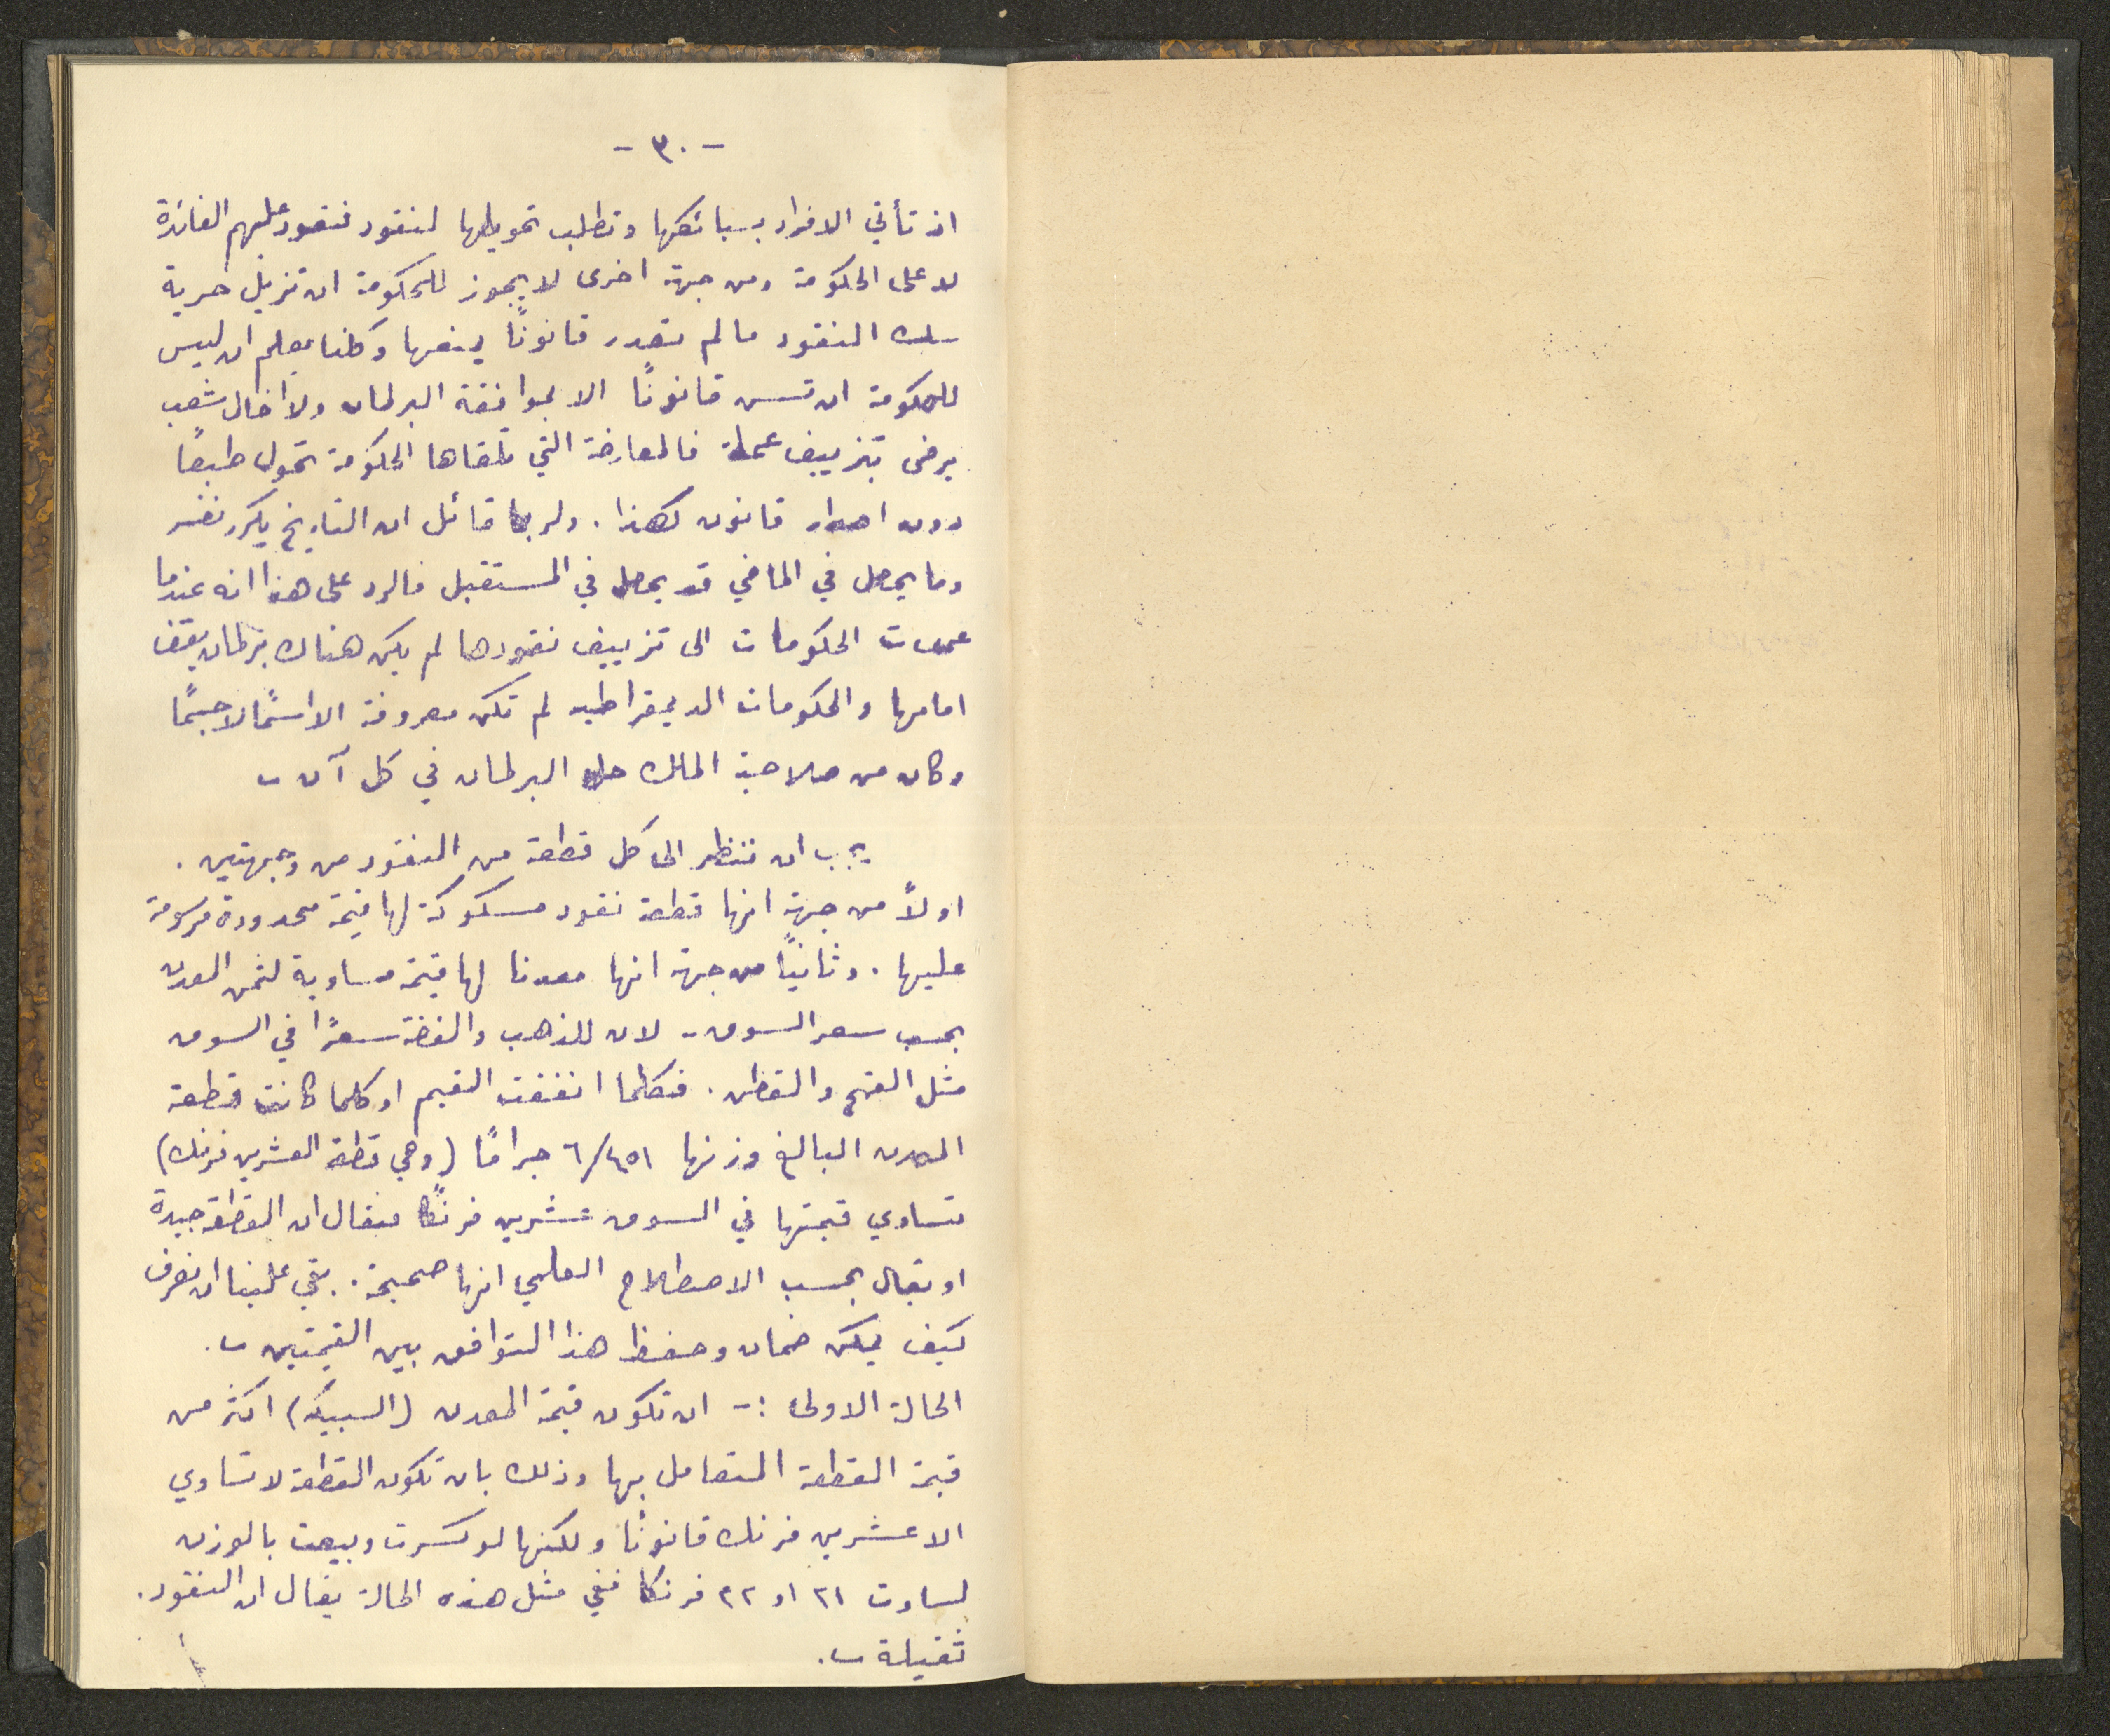 - ٣٠ -
اذ تأتي الافراد بسبائكها وتطلب تحويلها لنقود فتعود عليهم الفائدة
لا على الحكومة ومن جهة اخرى لا يجوز للحكومة ان تزيل حرية
سك النقود ما لم تصدر قانونًا يمنعها وكلنا يعلم ان ليس
للحكومة ان تسن قانونًا الا بموافقة البرلمان ولا اخال شعب
يرضى بتزييف عملة فالمعارضة التي تلقاها الحكومة تحول طبعًا
دون اصدار قانون كهذا. ولربما قائل ان التاريخ يكرر نفسه
وما يحصل في الماضي قد يحصل في المستقبل فالرد على هذا انه عندما
عمدت الحكومات الى تزييف نقودها لم يكن هناك برلمان يقف
امامها والحكومات الديمقراطيه لم تكن معروفة الا اسمًا لا جسمًا
وكان من صلاحية الملك حل البرلمان في كل آن
يجب ان ننظر الى كل قطعة من النقود من وجهتين.
اولاً من جهة انها قطعة نقود مسكوكة لها قيمة محدودة مرسومة
عليها. وثانيًا من جهة انها معدنا لها قيمة مساوية لثمن المعدن
بحسب سعر السوق - لان للذهب والفضة سعرًا في السوق
مثل القمح والقطن. فكلما اتفقت القيم او كلما كانت قطعة
المعدن البالغ وزنها ٦/٤٥١ جرامًا (وهي قطعة العشرين فرنك)
تساوي قيمتها في السوق عشرين فرنكًا فيقال ان القطعة جيدة
او يقال بحسب الاصطلاح العلمي انها صحيحة. بقي علينا ان نعرف
كيف يمكن ضمان وحفظ هذا التوافق بين القيمتين.
الحالة الاولى :- ان تكون قيمة المعدن (السبيكه) اكثر من
قيمة القطعة المتعامل بها وذلك بان تكون القطعة لا تساوي
الا عشرين فرنك قانونًا ولكنها لو كسرت وبيعت بالوزن
لساوت ٢١ او ٢٢ فرنكا ففي مثل هذه الحالة يقال ان النقود.
ثقيلة.